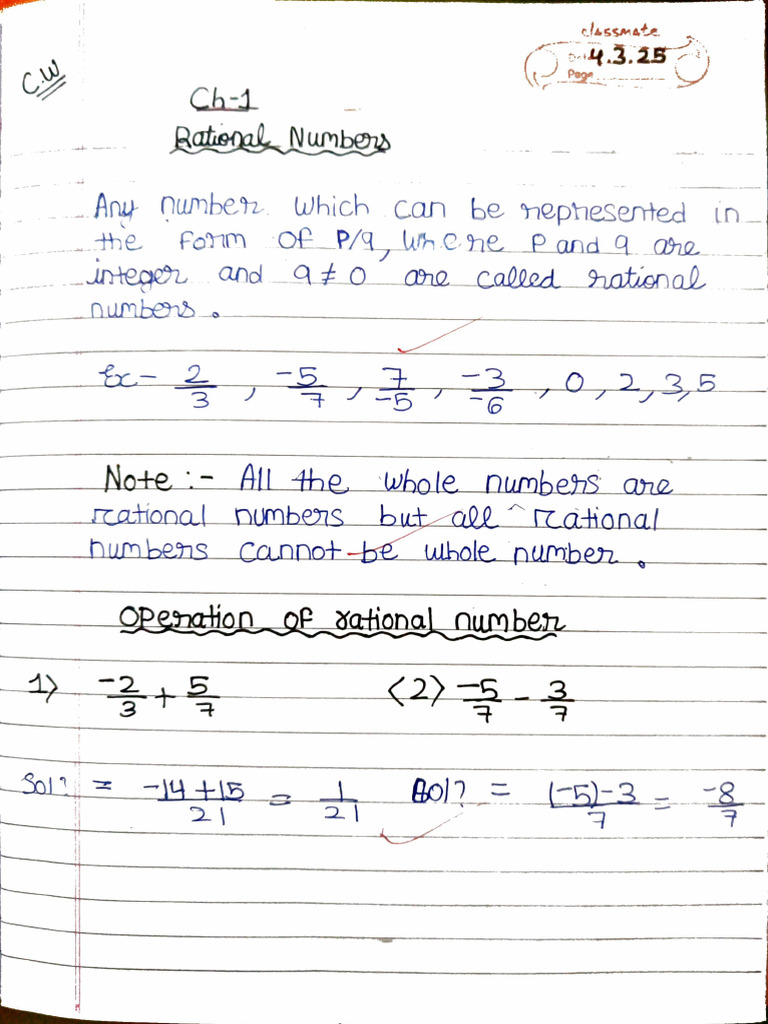 classmate
Date 4.3.25
Page
C.W
Ch-1
Rational Numbers
Any number which can be represented in
the form of P/q, where P and q are
integer and q ≠ 0 are called rational
numbers.
Ex - 2/3, -5/7, 7/-5, -3/-6, 0, 2, 3, 5
Note :- All the whole numbers are
rational numbers but all ^ rational
numbers cannot be whole number.
Operation of rational number
1) -2/3 + 5/7 (2) -5/7 - 3/7
Sol? = -14+15/21 = 1/21 Sol? = (-5)-3/7 = -8/7